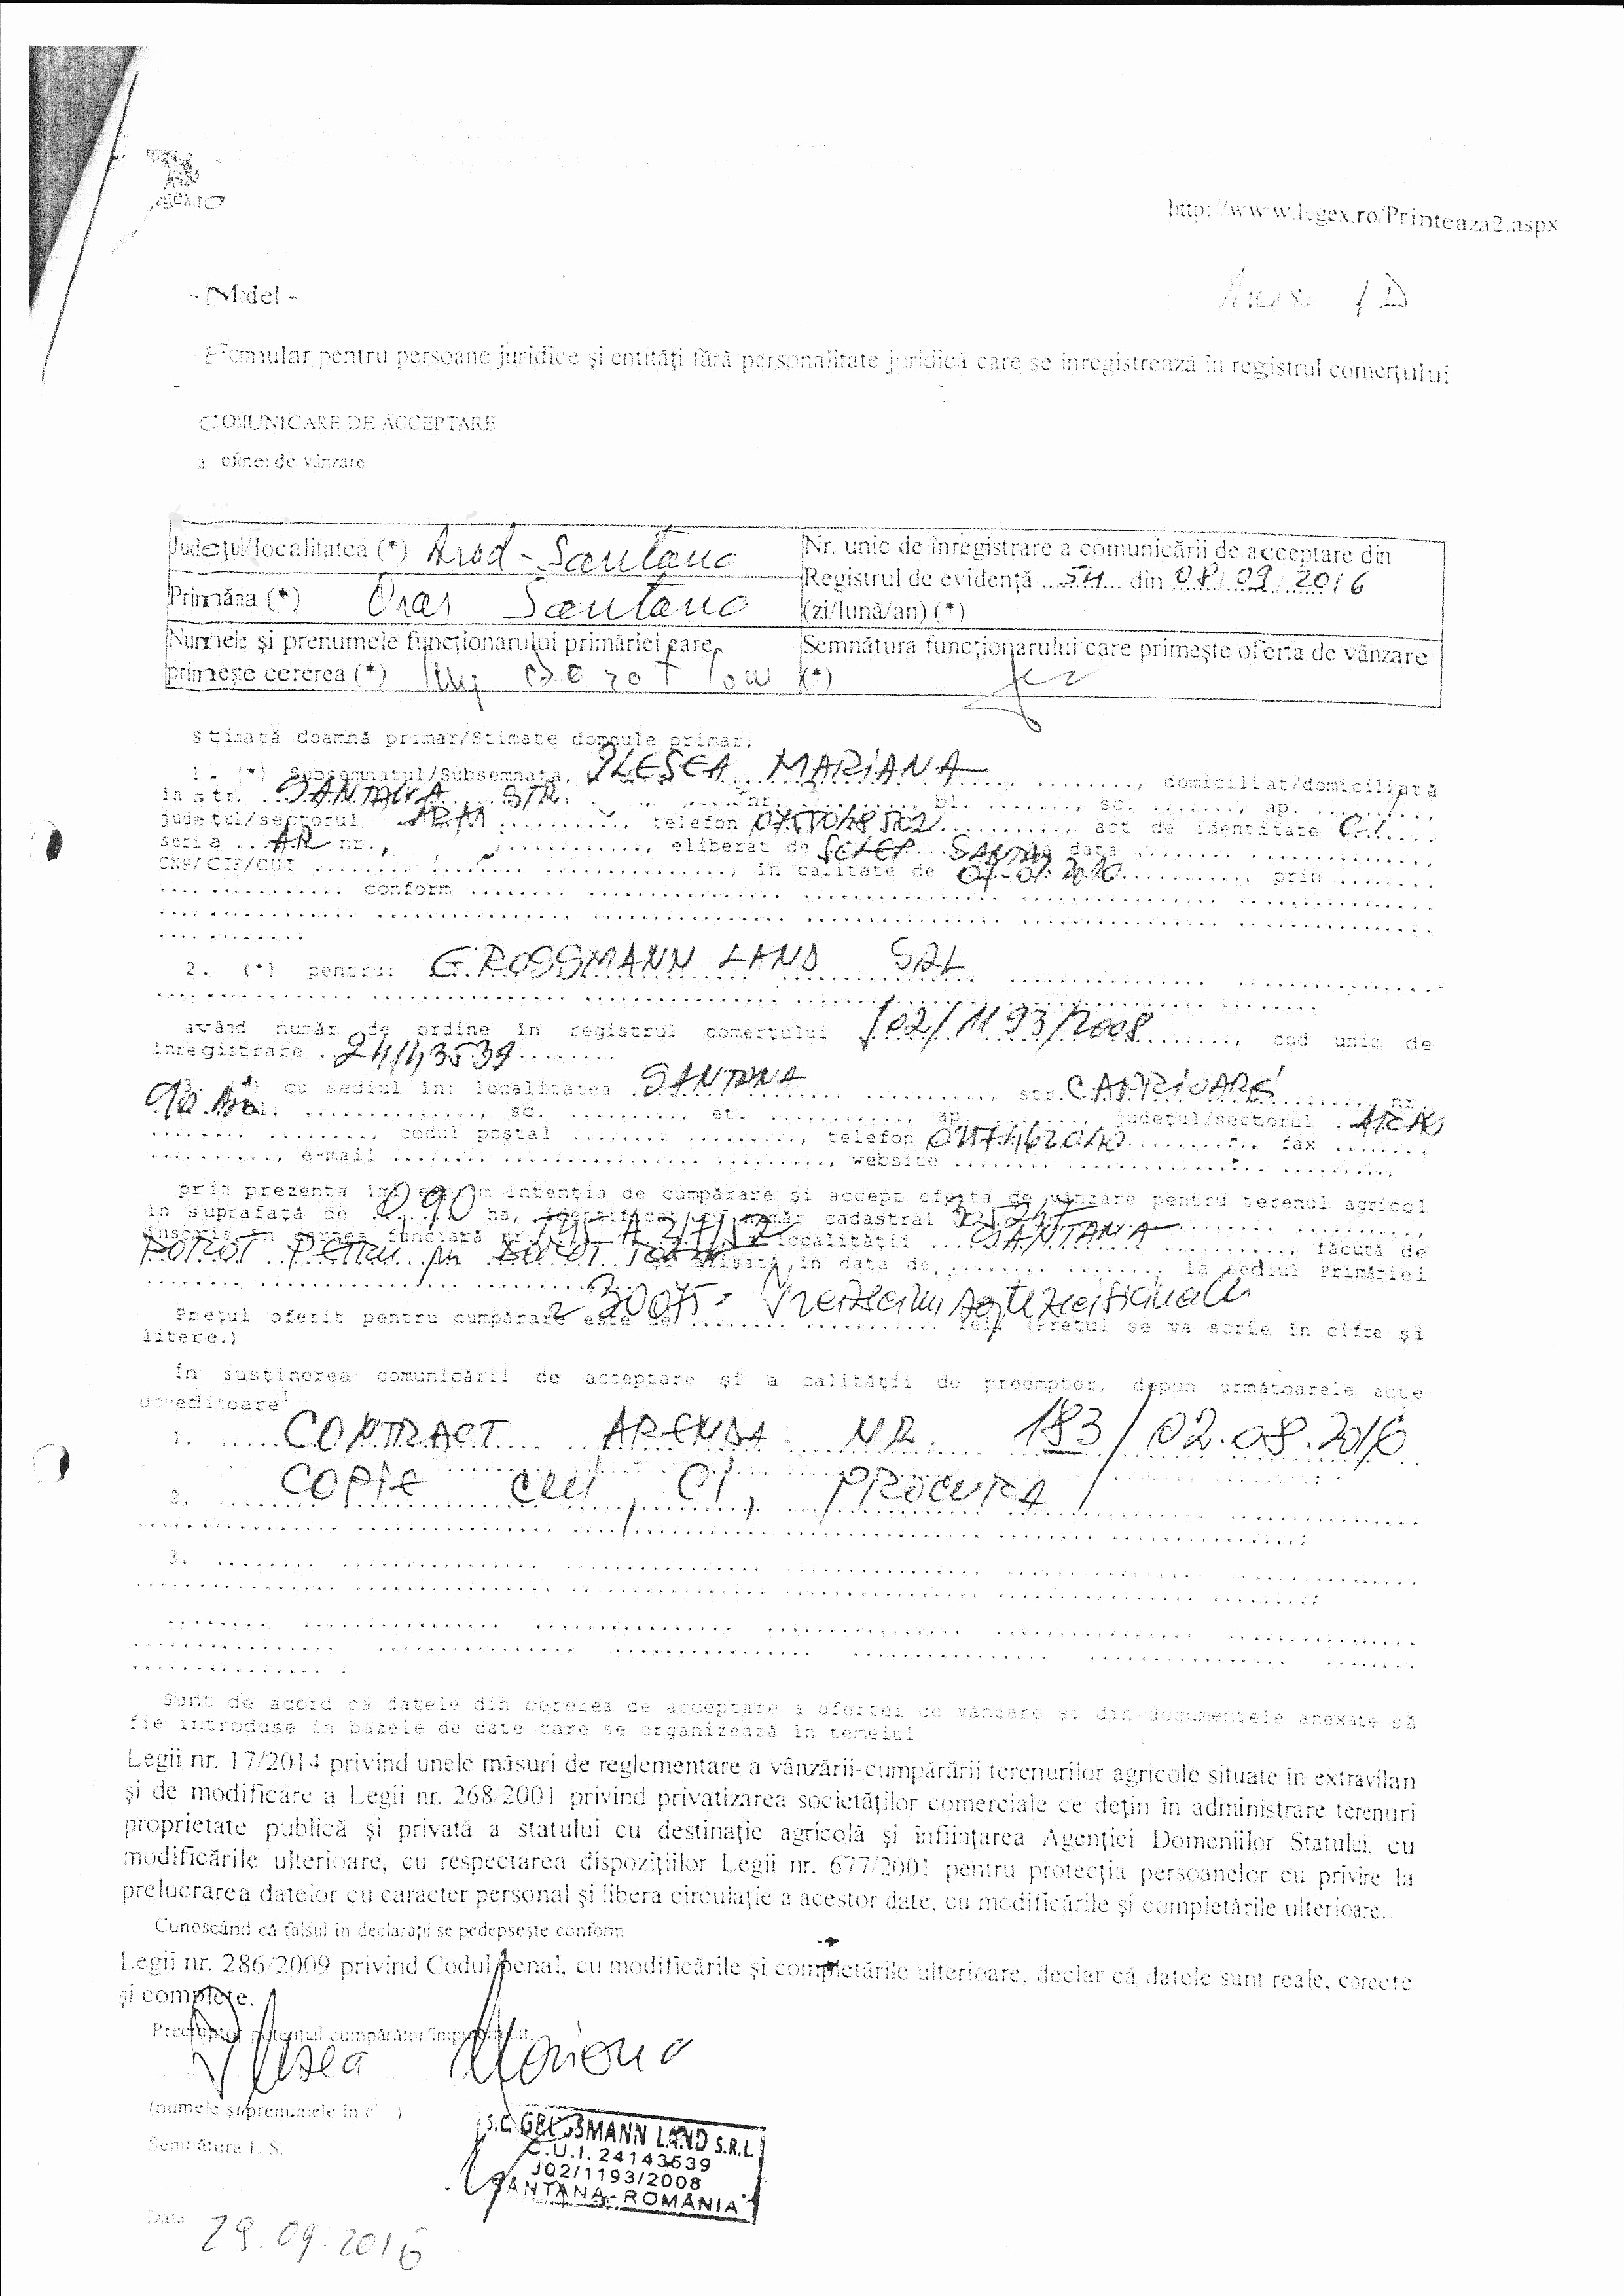 http://www.legex.ro/Printeaza2.aspx
- Model -
Anexa 1D
Formular pentru persoane juridice și entități fără personalitate juridică care se înregistrează în registrul comerțului
-
COMUNICARE DE ACCEPTARE
a ofertei de vânzare
Județul/localitatea (*) Arad - Santana
Nr. unic de înregistrare a comunicării de acceptare din
Registrul de evidență ...54... din 08/09/2016
Primăria (*) Oras Santana
(zi/lună/an) (*)
Numele și prenumele funcționarului primăriei care
primește cererea (*)
Semnătura funcționarului care primește oferta de vânzare
(*)
Stimată doamnă primar/Stimate domnule primar,
1. (*) Subsemnatul/Subsemnata, PLESEA MARIANA ........., domiciliat/domiciliată
în str. SANTANA STR. nr. ........, bl. ......., sc. ......., ap. .......,
județul/sectorul ..........., telefon ..........., act de identitate C.I.....
seria ...AR nr., ..........., eliberat de SCLEP SANTANA la data ....... ..............,
CNP/CIF/CUI ........ ........ ................, în calitate de ..........., prin ........
................ conform ........
2. (*) pentru: GROSSMANN LAND SRL
având număr de ordine în registrul comerțului J02/1193/2008 ........, cod unic de
înregistrare ..24143539.........
3. (*) cu sediul în: localitatea SANTANA ..........., str. CAPRIOAREI ..........., nr.
bl. .............., sc. ........., et. ..........., ap. ......, județul/sectorul . ARAD
........ ........, codul poștal ........ ........, telefon ..........., fax ........
..........., e-mail ........ ................ ........, website ........ ................ ........,
prin prezenta îmi exprim intenția de cumpărare și accept oferta de vânzare pentru terenul agricol
în suprafață de 0,90 ha, identificat cu număr cadastral ........ ........,
înscris în cartea funciară nr. ........ a localității .... SANTANA ..........., făcută de
PETRU prin ........ și afișată în data de ........ ........, la sediul Primăriei
Prețul oferit pentru cumpărare este de 23007 ........ lei. (Prețul se va scrie în cifre și
litere.)
În susținerea comunicării de acceptare și a calității de preemptor, depun următoarele acte
doveditoare1
1. ...... CONTRACT ARENDA NR. 183/02.08.2016
2. ...... COPIE CUI, CI, PROCURA
3. ........
Sunt de acord ca datele din cererea de acceptare a ofertei de vânzare și din documentele anexate să
fie introduse în bazele de date care se organizează în temeiul
Legii nr. 17/2014 privind unele măsuri de reglementare a vânzării-cumpărării terenurilor agricole situate în extravilan
și de modificare a Legii nr. 268/2001 privind privatizarea societăților comerciale ce dețin în administrare terenuri
proprietate publică și privată a statului cu destinație agricolă și înființarea Agenției Domeniilor Statului, cu
modificările ulterioare, cu respectarea dispozițiilor Legii nr. 677/2001 pentru protecția persoanelor cu privire la
prelucrarea datelor cu caracter personal și libera circulație a acestor date, cu modificările și completările ulterioare.
Cunoscând că falsul în declarații se pedepsește conform
Legii nr. 286/2009 privind Codul penal, cu modificările și completările ulterioare, declar că datele sunt reale, corecte
și complete.
Preemptor potențial cumpărător/împuternicit,
Plesea Mariana
(numele și prenumele în clar)
Semnătura L.S.
S.C. GROSSMANN LAND S.R.L.
C.U.I. 24143539
J02/1193/2008
SÂNTANA - ROMÂNIA
Data 29.09.2016